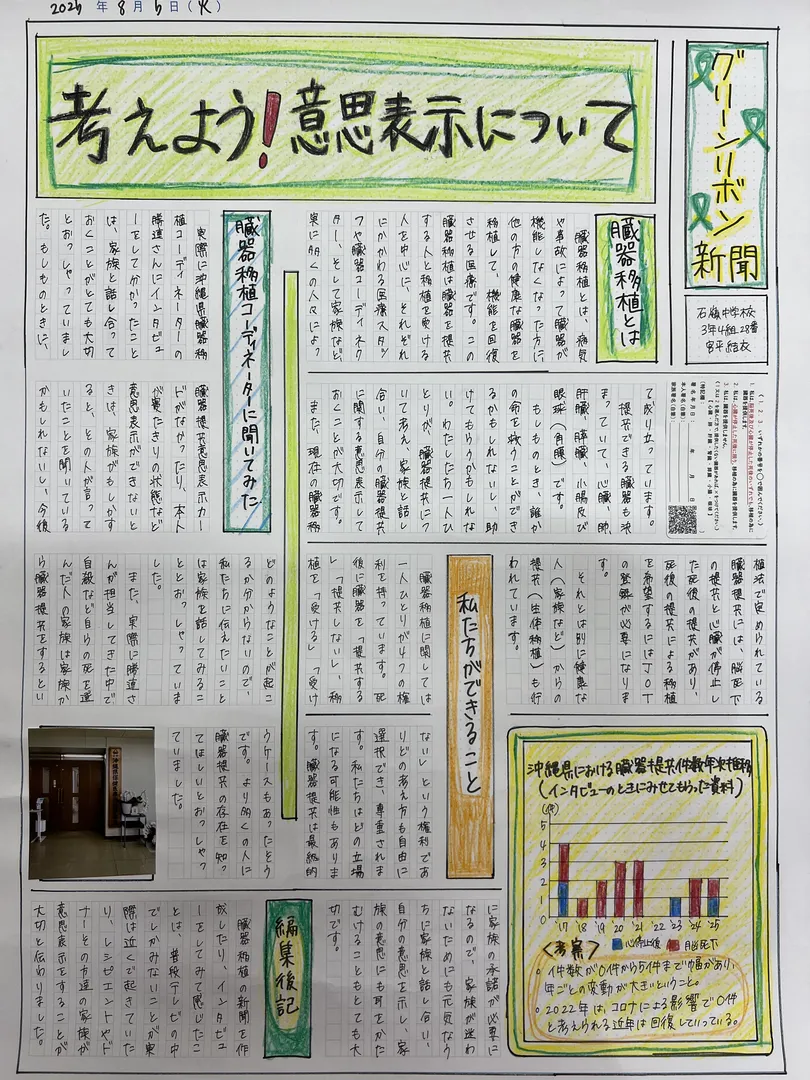 2025年8月5日(火)
グリーンリボン
新聞
石嶺中学校
3年4組28番
宮平結衣
考えよう!意思表示について
臓器移植とは
臓器移植とは、病気
や事故によって臓器が
機能しなくなった方に、
他の方の健康な臓器を
移植して、機能を回復
させる医療です。この
臓器移植は臓器を提供
する人と移植を受ける
人を中心に、それぞれ
にかかわる医療スタッ
フや臓器コーディネー
ター、そして家族など、
実に多くの人々によっ
て成り立っています。
提供できる臓器も決
まっていて、心臓、肺、
肝臓、膵臓、小腸及び
眼球(角膜)です。
もしものとき、誰か
の命を救うことができ
るかもしれないし、助
けてもらうかもしれな
い。わたしたち一人ひ
とりが、臓器提供につ
いて考え、家族と話し
合い、自分の臓器提供
に関する意思表示して
おくことが大切です。
また、現在の臓器移
植法で定められている
臓器提供には、脳死下
の提供と心臓が停止し
た死後の提供があり、
死後の提供による移植
を希望するにはJOT
の登録が必要になりま
す。
それとは別に健康な
人(家族など)からの
提供(生体移植)も行
われています。
《1.2.3.いずれかの番号を○で囲んでください。》
1. 私は、脳死後及び心臓が停止した死後のいずれでも、移植の為に臓器を提供します。
2. 私は、心臓が停止した死後に限り、移植の為に臓器を提供します。
3. 私は、臓器を提供しません。
【心臓・肺・肝臓・腎臓・膵臓・小腸・眼球】
署名年月日: 年 月 日
本人署名(自筆):
家族署名(自筆):
私たちができること
臓器移植に関しては
一人ひとりが4つの権
利を持っています。死
後に臓器を「提供する
」「提供しない」、移
植を「受ける」「受け
ない」という権利であ
りどの考え方も自由に
選択でき、尊重されま
す。私たちはどの立場
になる可能性もありま
す。臓器提供は最終的
に家族の承諾が必要に
なるので、家族が迷わ
ないためにも元気なう
ちに家族と話し合い、
自分の意思を示し、家
族の意思にも耳をかた
むけることもとても大
切です。
臓器移植コーディネーターに聞いてみた
実際に沖縄県臓器移
植コーディネーターの
勝連さんにインタビュ
ーをして分かったこと
は、家族と話し合って
おくことがとても大切
とおっしゃっていまし
た。もしものときに、
臓器提供意思表示カー
ドがなかったり、本人
が寝たきりの状態など
意思表示ができないと
きは、家族がもしかす
ると、その人が言って
いたことを聞いている
かもしれないし、今後
どのようなことが起こ
るか分からないので、
私たちに伝えたいこと
は家族を話してみるこ
ととおっしゃっていま
した。
また、実際に勝連さ
んが担当してきた中で、
自殺など自らの死を選
んだ人の家族は家族か
ら臓器提供をするとい
うケースもあったそう
です。より多くの人に
臓器提供の存在を知っ
てほしいとおっしゃっ
ていました。
編集後記
臓器移植の新聞を作
成したり、インタビュ
ーをしてみて感じたこ
とは、普段テレビの中
でしかみないことが実
際は近くで起きていた
り、レシピエントやド
ナーその方達の家族が
意思表示をすることが
大切と伝わりました。
沖縄県における臓器提供件数年次推移
(インタビューのときにみせてもらった資料)
(件)
5
4
3
2
1
0
'17 '18 '19 '20 '21 '22 '23 '24 '25
心停止後 脳死下
<考察>
○件数が0件から5件まで幅があり、
年ごとの変動が大きいということ。
○2022年は、コロナによる影響で0件
と考えられる近年は回復していっている。